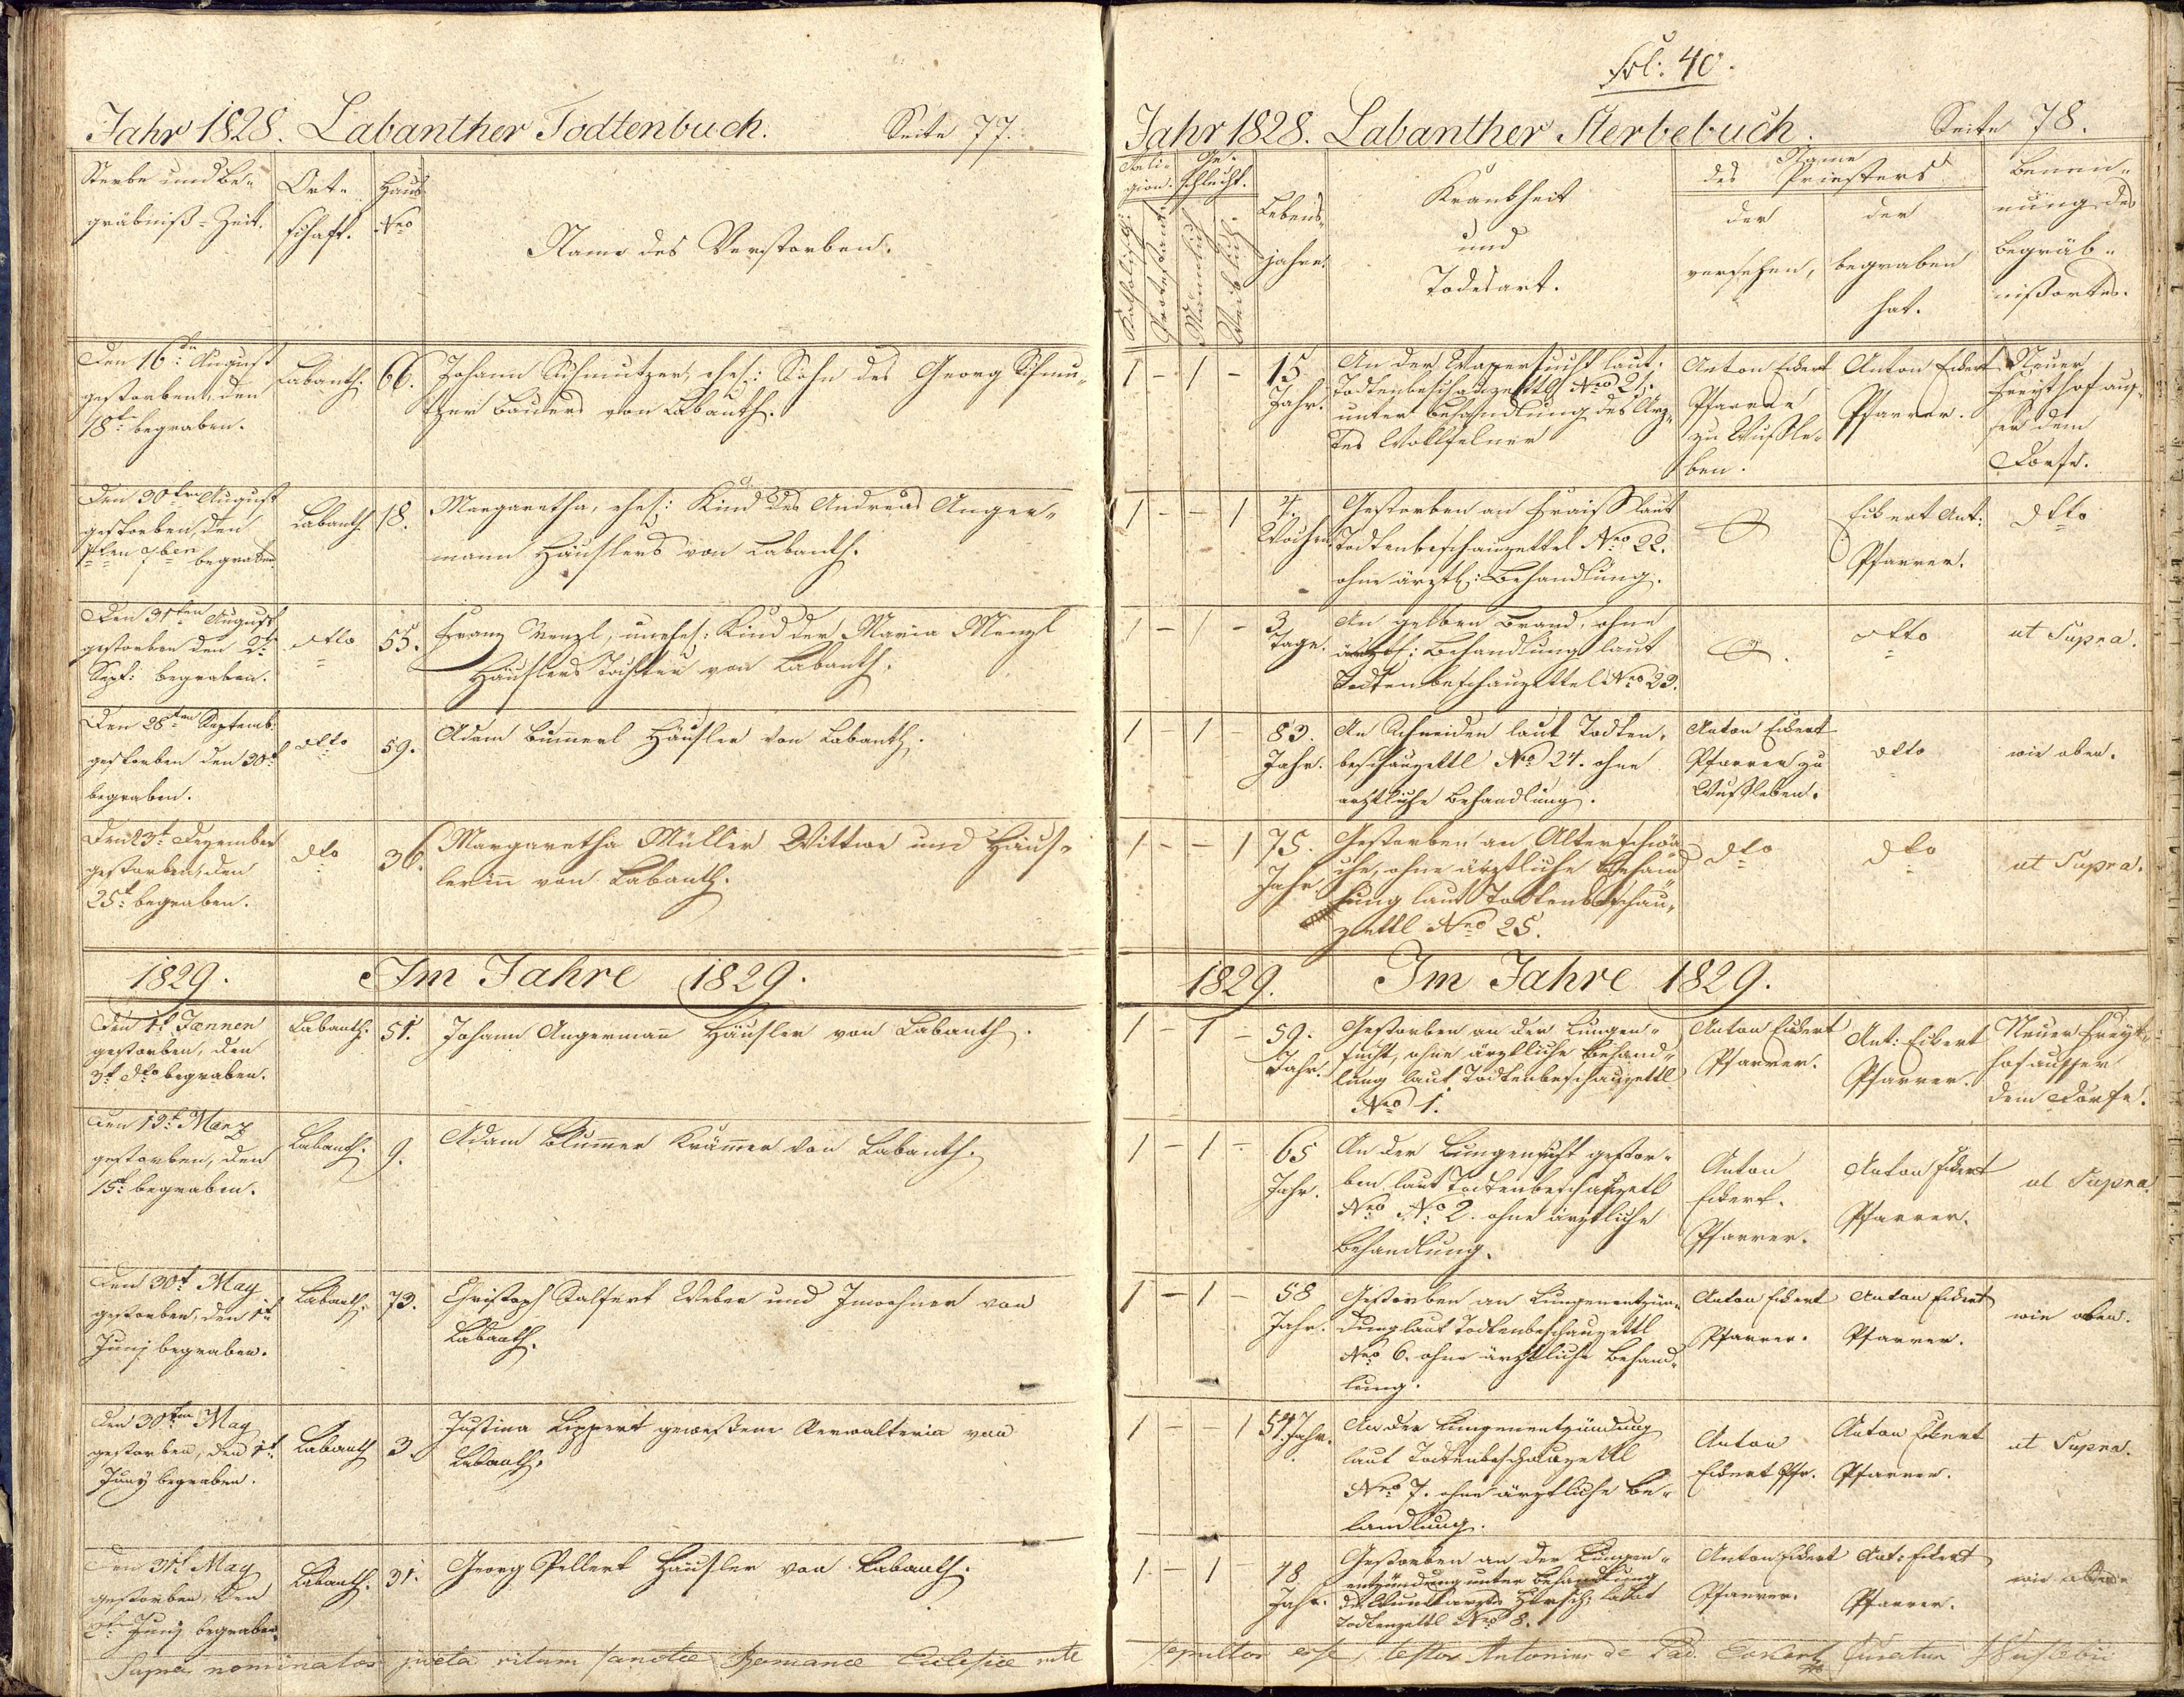 Jahr 1828. Labanther Todtenbuch. Seite 77.
Sterbe und Be-
gräbniß-Zeit.
Ort-
schaft.
Haus
Nro
Name des Verstorben.
Den 16tn August
gestorben, den
18t begraben.
Labanth.
66.
Johann Schmutzer, ehel: Sohn des Georg Schmu-
tzer Bauers von Labanth.
Den 30ten August
gestorben, den
1ten 7ben begraben
Labanth
18.
Margaretha, ehel: Kind des Andreas Anger-
mann Häuslers von Labanth.
Den 31ten August
gestorben den 2t
Sept: begraben.
dtto
55.
Franz Menzl, unehel: Kind der Maria Menzl
Häuslers Tochter von Labanth.
Den 28ten Septemb.
gestorben den 30t
begraben.
dtto
59.
Adam Bumerl Häusler von Labanth.
Den 23t Dezember
gestorben, den
25t begraben.
dto
36.
Margaretha Müller Wittwe und Häus-
lerinn von Labanth.
1829. Im Jahre 1829.
Den 1t Jænner
gestorben, den
3t dto begraben.
Labanth.
51.
Johann Angerman Häusler von Labanth.
Den 13t Marz
gestorben, den
15t begraben.
Labanth.
9.
Adam Blumer Krämer von Labanth.
Den 30t May
gestorben, den 1t
Junj begraben.
Labanth.
73.
Christoph Salfert Weber und Inwohner von
Labanth.
Den 30ten May
gestorben, den 1t
Juny begraben.
Labanth
3.
Justina Lippert gewesene Verwalterin von
Labanth.
Den 31t May
gestorben, den
2t Junj begraben
Labanth.
31.
Georg Pellert Häusler von Labanth.
Supra nominatos juxta ritum sanctæ Romanæ Eclesiæ rite
fol: 40.
Jahr 1828. Labanther Sterbebuch. Seite 78.
Reli-
gion.
Ge-
schlecht.
Katholisch.
Protestant.
Männlich
Weiblich.
Lebens-
jahre.
Krankheit
und
Todesart.
Name
des Priesters
der
versehen,
der
begraben
hat.
Benen-
nung des
Begräb-
nißortes.
1 - 1 -
15
Jahr.
An der Wassersucht laut
Todtenbeschauzettl Nro 21.
unter Behandlung des Arz-
tes
Anton Eckert
Pfarrer
zu Wußle-
ben.
Anton Eckert
Pfarrer.
Neuer
Freythof aus-
ser dem
Dorfe.
1 - - 1
4.
Wochen
Gestorben an Fraiß laut
Todtenbeschauzettel Nro 22.
ohne ärztl: Behandlung.
Eckert Ant:
Pfarrer.
dtto
1 - 1 -
3
Tage.
An gelben Brand, ohne
ärztl: Behandlung laut
Todtenbeschauzettel Nro 23.
dtto
ut Supra.
1 - 1 -
83.
Jahr.
An Schneiden laut Todten-
beschauzettl No 24. ohne
arztliche Behandlung.
Anton Eckert
Pfarrer zu
Wußleben.
dtto
wie oben.
1 - - 1
75.
Jahr
Gestorben an Alterschwä-
che, ohne ärztliche Behand
lung laut Todtenbeschau-
zettl Nro 25.
dto
dto
ut Supra.
1829. Im Jahre 1829.
1 - 1 -
59.
Jahr.
Gestorben an der Lungen-
sucht, ohne ärztliche Behand-
lung laut Todtenbeschauzettl
Nro 1.
Anton Eckert
Pfarrer.
Ant: Eckert
Pfarrer.
Neuer Freyt-
hof ausser
dem Dorfe.
1 - 1 -
65
Jahr.
An der Lungensucht gestor-
ben laut Todtenbeschauzettl
Nro No 2. ohne ärztliche
Behandlung.
Anton
Eckert.
Pfarrer.
Anton Eckert
Pfarrer.
ut Supra
1 - 1 -
58
Jahr.
Gestorben an Lungenentzün-
dung laut Todtenbeschauzettl
Nro 6. ohne ärztliche Behand-
lung.
Anton Eckert
Pfarrer.
Anton Eckert
Pfarrer.
wie oben.
1 - - 1
54 Jahr.
An der Lungenentzündung
laut Todtenbeschauzettl
Nro 7. ohne ärztliche Be-
handlung.
Anton
Eckert Pfr.
Anton Eckert
Pfarrer.
ut Supra.
1 - 1
48
Jahr.
Gestorben an der Lungen-
entzündung unter Behandlung
des Wundarzts Hirsch: laut
Todtenzettl Nro 8.
Anton Eckert
Pfarrer.
Ant: Eckert
Pfarrer.
wie oben
sepultos esse, testor Antonius de Pad. Eckert Curatus Wuslebii